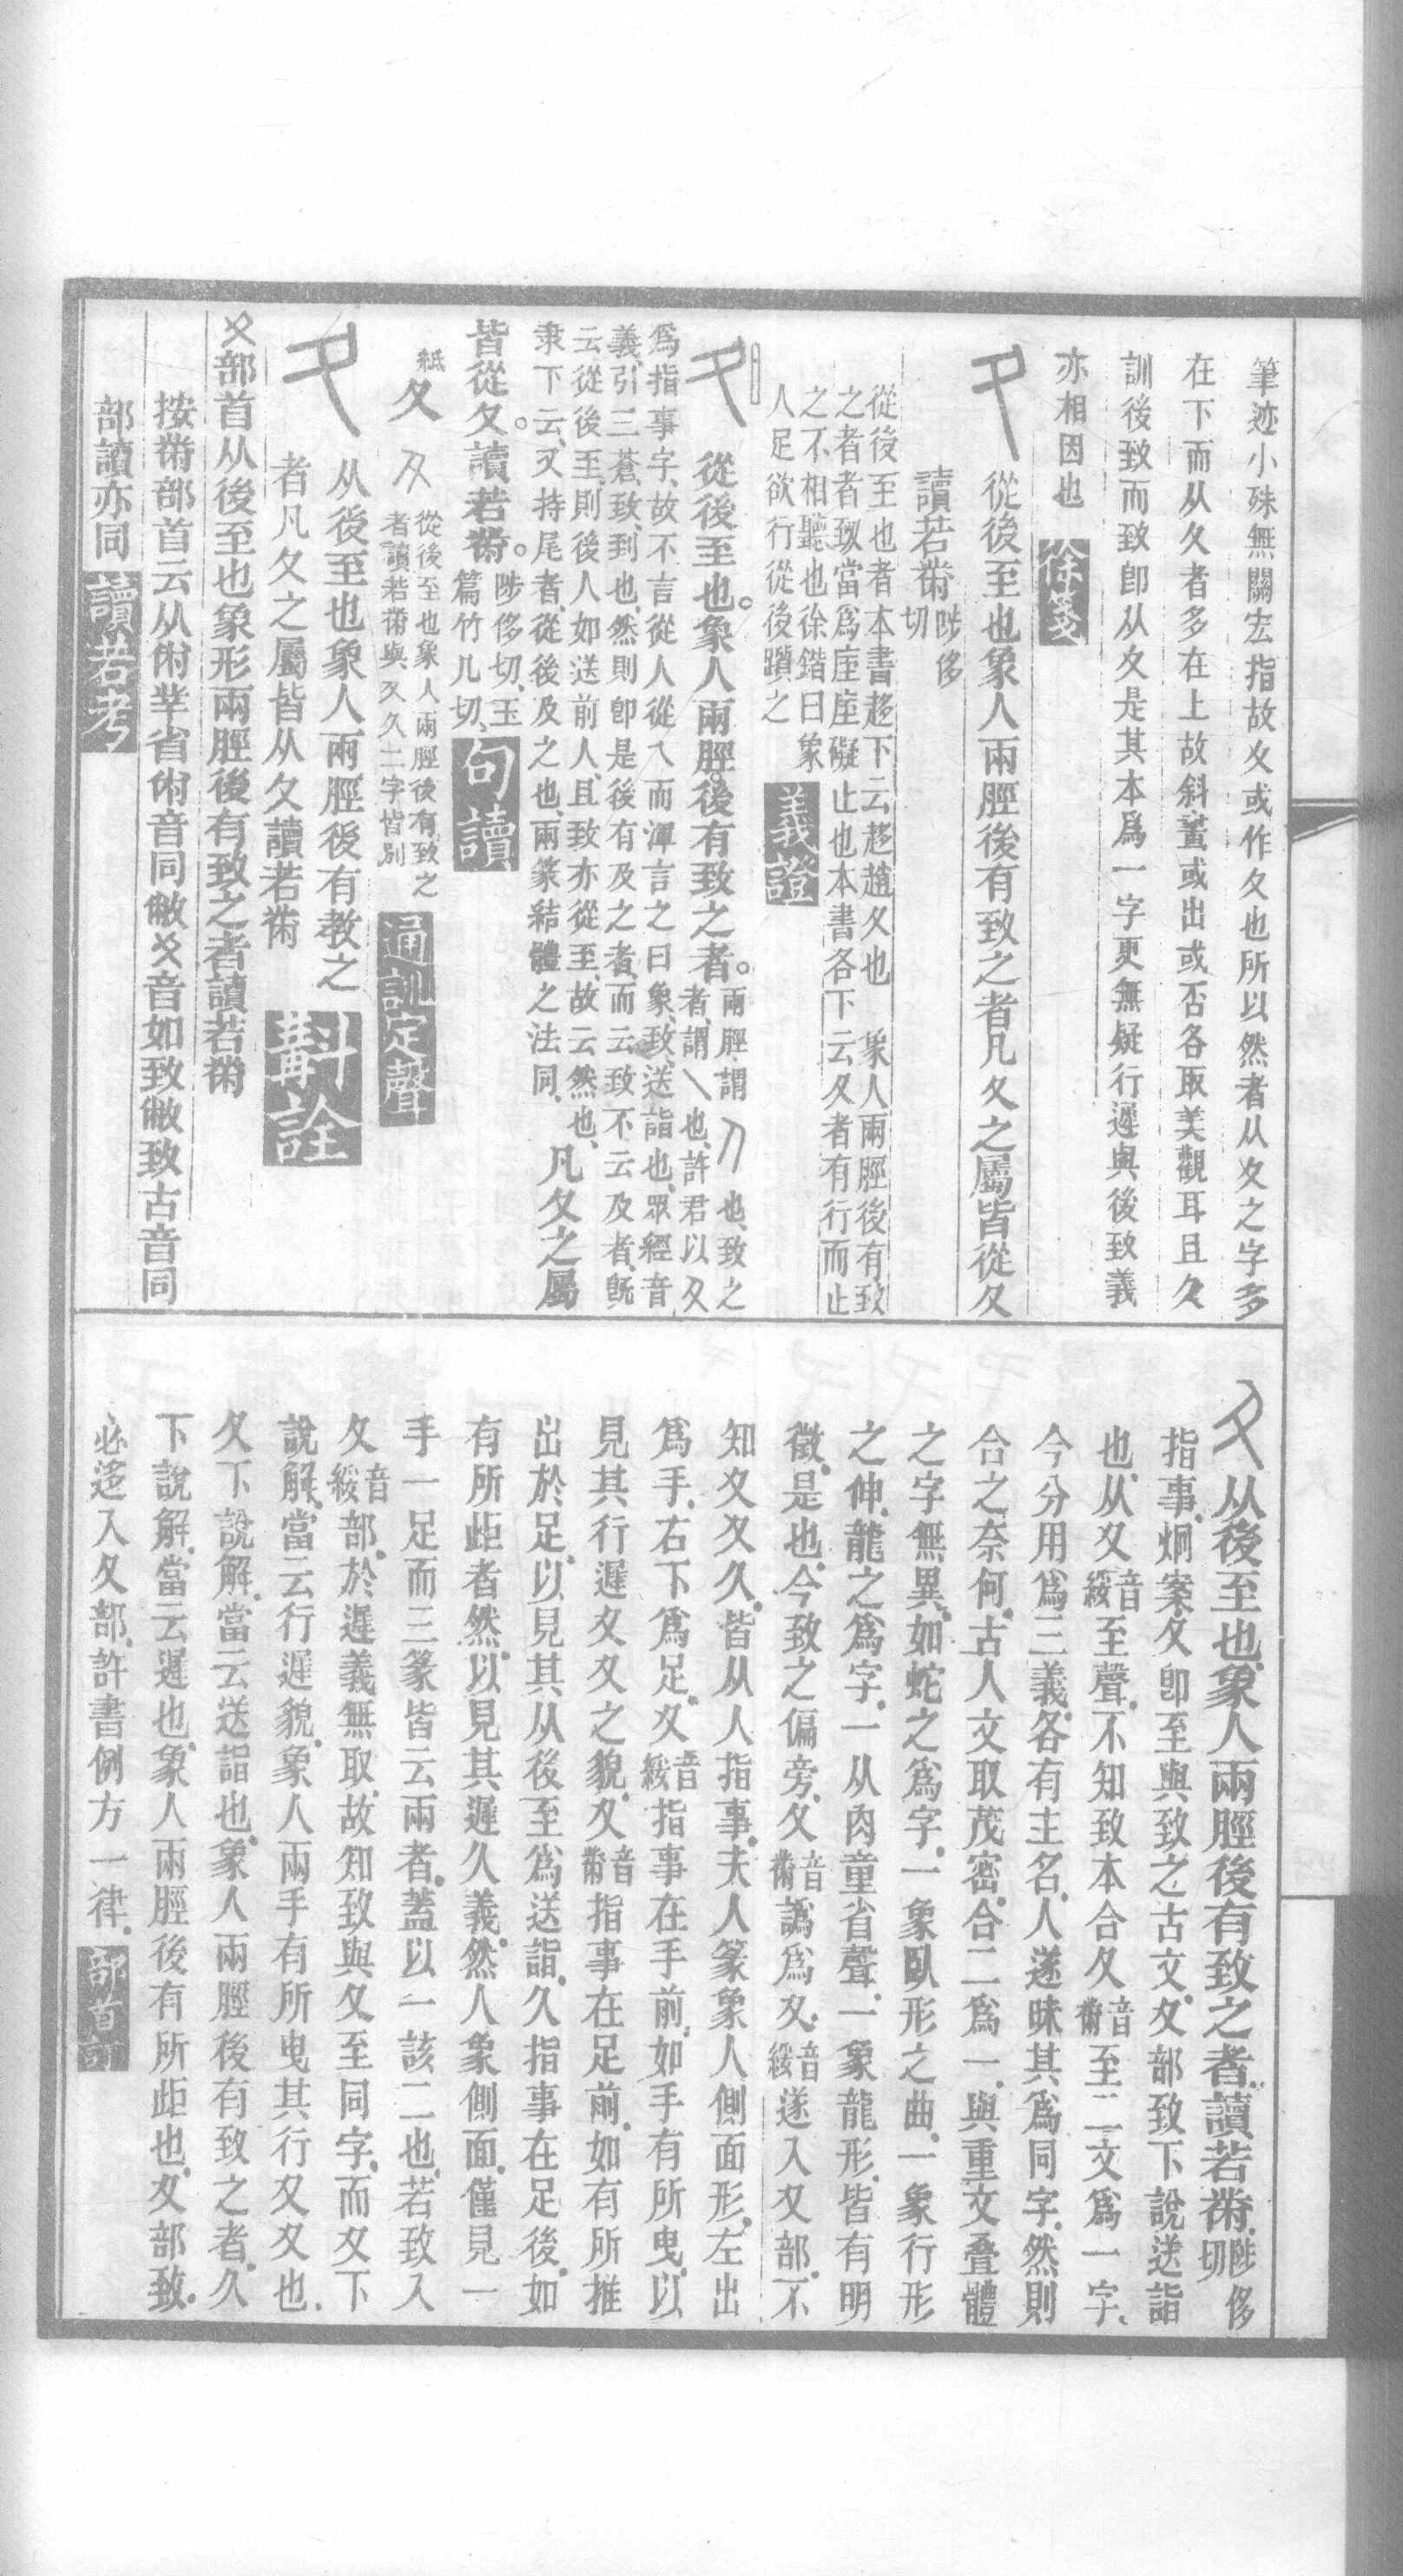 筆迹小殊無關宏指故夊或作夂也所以然者从夊之字多
在下而从夂者多在上故斜畫或出或否各取美觀耳且夂
訓後致而致卽从夊是其本爲一字更無疑行遲與後致義
亦相因也 徐箋
從後至也象人兩脛後有致之者凡夂之屬皆從夂
讀若黹陟侈切
從後至也者本書趍下云趍趙夂也 象人兩脛後有致
之者者致當爲㢊㢊礙止也本書各下云夂者有行而止
之不相聽也徐鍇曰象
人足欲行從後躓之 義證
從後至也。象人兩脛。後有致之者。兩脛謂 也、致之
者、謂乀也、許君以夂
爲指事字、故不言從人從乀而渾言之曰象、致、送詣也、眾經音
義、引三蒼、致、到也、然則卽是後有及之者、而云致不云及者、旣
云從後至、則後人如送前人、且致亦從至、故云然也、
隶下云、又持尾者、從後及之也、兩篆結體之法同、凡夂之屬
皆從夂。讀若黹。陟侈切、玉
篇竹几切、 句讀
紙夂 從後至也象人兩脛後有致之
者讀若黹與夊久二字皆別 通訓定聲
从後至也象人兩脛後有教之
者凡夂之屬皆从夂讀若黹 斠詮
夂部首从後至也象形兩脛後有致之者讀若黹
按黹部首云从㡀丵省㡀音同敝夂音如致敝致古音同
部讀亦同 讀若考
从後至也、象人兩脛後有致之者、讀若黹、陟侈切
指事、炯案、夂卽至與致之古文、夊部致下說送詣
也、从夊音綏至聲、不知致本合夂音黹至二文爲一字、
今分用爲三義、各有主名、人遂昧其爲同字、然則
合之奈何、古人文取茂密、合二爲一、與重文叠體
之字無異、如蛇之爲字、一象臥形之曲、一象行形
之伸、龍之爲字、一从肉童省聲、一象龍形、皆有明
徵、是也、今致之偏旁、夂音黹譌爲夊、音綏遂入夊部、不
知夂夊久、皆从人指事、夫人篆象人側面形、左出
爲手、右下爲足、夊音綏指事在手前、如手有所曳、以
見其行遲夊夊之貌、夂音黹指事在足前、如有所推
出於足、以見其从後至爲送詣、久指事在足後、如
有所歫者然、以見其遲久義、然人象側面、僅見一
手一足、而三篆皆云兩者、蓋以一該二也、若致入
夊音綏部、於遲義無取、故知致與夂至同字、而夊下
說解、當云行遲貌、象人兩手有所曳其行夊夊也、
夂下說解、當云送詣也、象人兩脛後有致之者、久
下說解、當云遲也、象人兩脛後有所歫也、夊部致、
必迻入夂部、許書例方一律、 部首訂